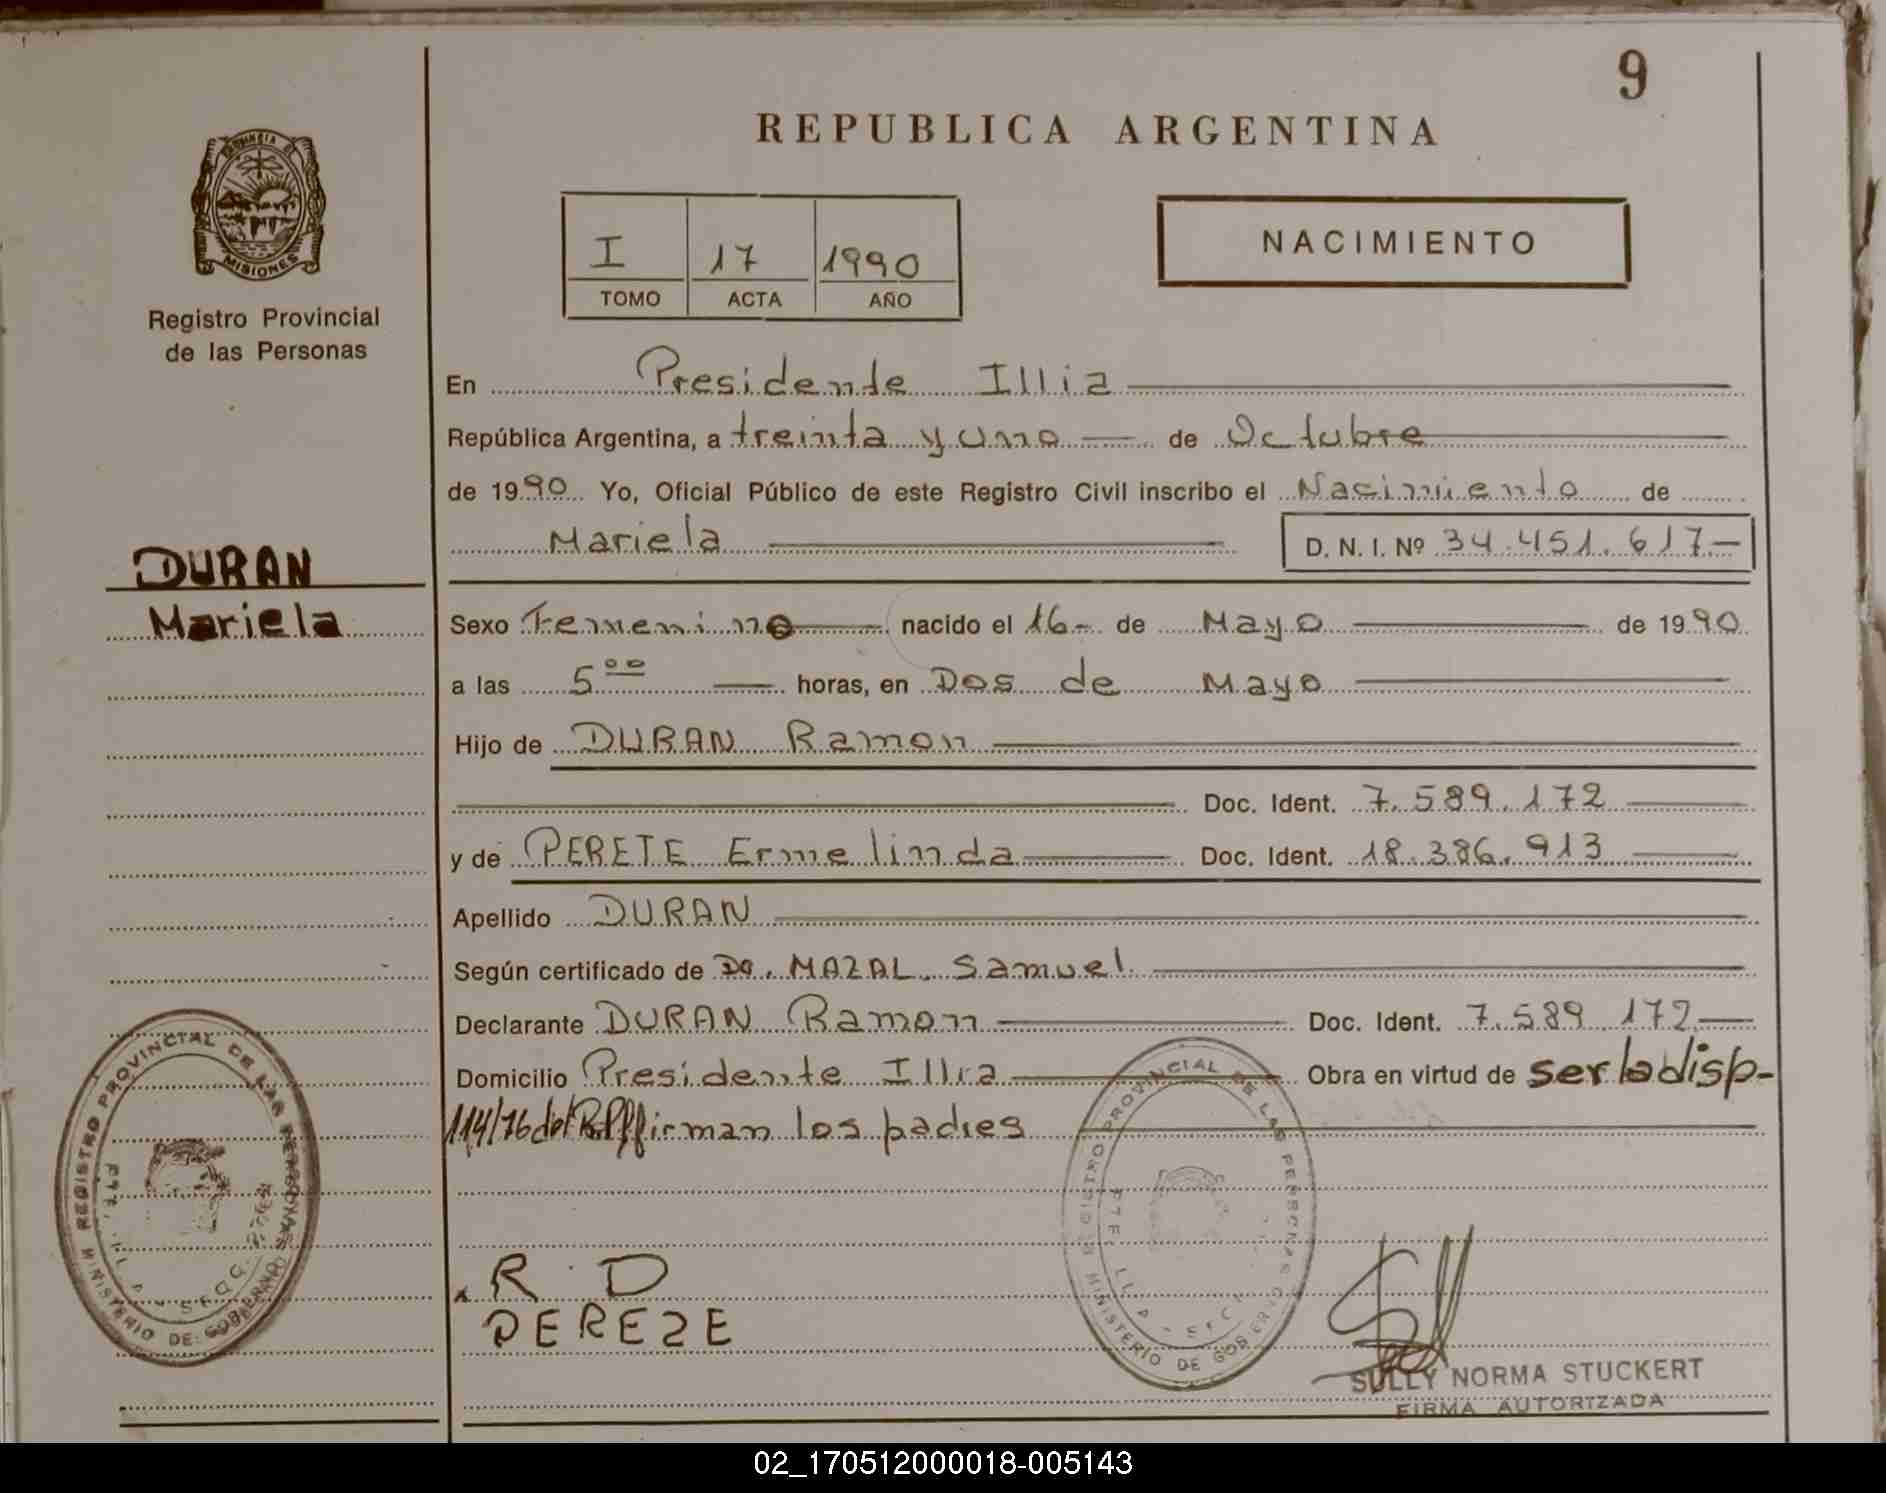 9
REPUBLICA ARGENTINA
PROVINCIA DE
MISIONES
Registro Provincial
de las Personas
I 17 1990
TOMO ACTA AÑO
NACIMIENTO
En Presidente Illia
República Argentina, a treinta y uno de Octubre
de 1990 Yo, Oficial Público de este Registro Civil inscribo el Nacimiento de
Mariela D. N. I. Nº 34.451.617.-
DURAN
Mariela
Sexo Femenino nacido el 16- de Mayo de 1990
a las 5 00 horas, en Dos de Mayo
Hijo de DURAN Ramon
Doc. Ident. 7.589.172
y de PERETE Ermelinda Doc. Ident. 18.386.913
Apellido DURAN
Según certificado de Dq. MAZAL Samuel
Declarante DURAN Ramon Doc. Ident. 7.589 172
Domicilio Presidente Illia Obra en virtud de ser la disp-
114/76 del firman los padres
REGISTRO PROVINCIAL DE LAS PERSONAS
MINISTERIO DE GOBIERNO
REGISTRO PROVINCIAL DE LAS PERSONAS
MINISTERIO DE GOBIERNO
R D
PEREZE
SULLY NORMA STUCKERT
FIRMA AUTORIZADA
02_170512000018-005143